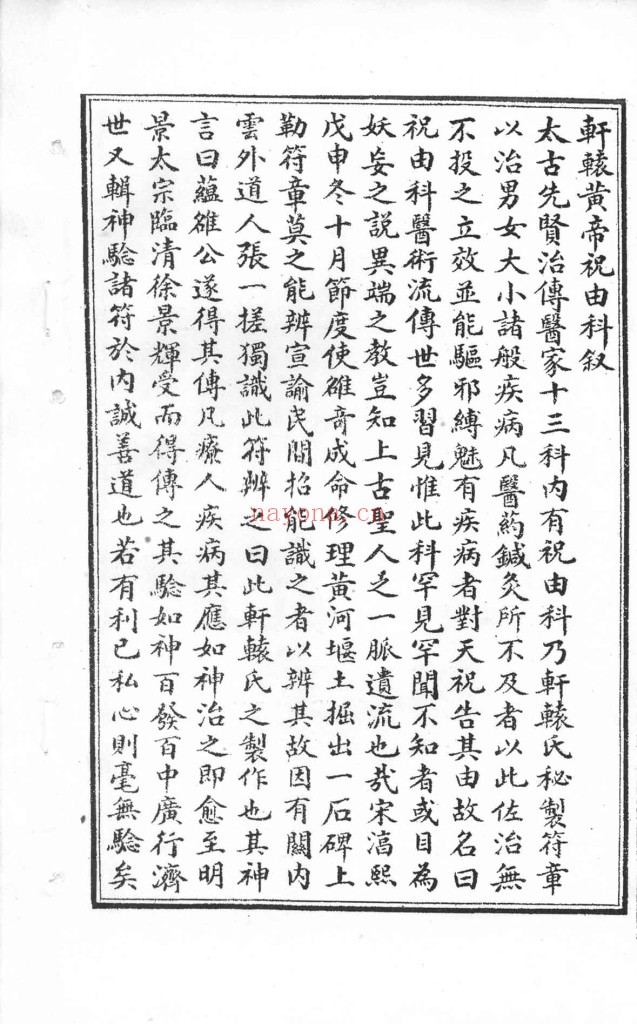 軒轅黃帝祝由科叙
太古先賢治傳醫家十三科內有祝由科乃軒轅氏秘製符章
以治男女大小諸般疾病凡醫葯鍼灸所不及者以此佐治無
不投之立效並能驅邪縛魅有疾病者對天祝告其由故名曰
祝由科醫術流傳世多習見惟此科罕見罕聞不知者或目為
妖妄之説異端之教豈知上古聖人之一脈遺流也㢤宋淳熙
戊申冬十月節度使雒奇成命修理黃河堰土掘出一石碑上
勒符章莫之能辨宣諭民間招能識之者以辨其故因有關內
雲外道人張一槎獨識此符辨之曰此軒轅氏之製作也其神
言曰蘊雒公遂得其傳凡療人疾病其應如神治之即愈至明
景太宗臨清徐景輝受而得傳之其驗如神百發百中廣行濟
世又輯神驗諸符於內誠善道也若有利己私心則毫無驗矣
nayona.cn